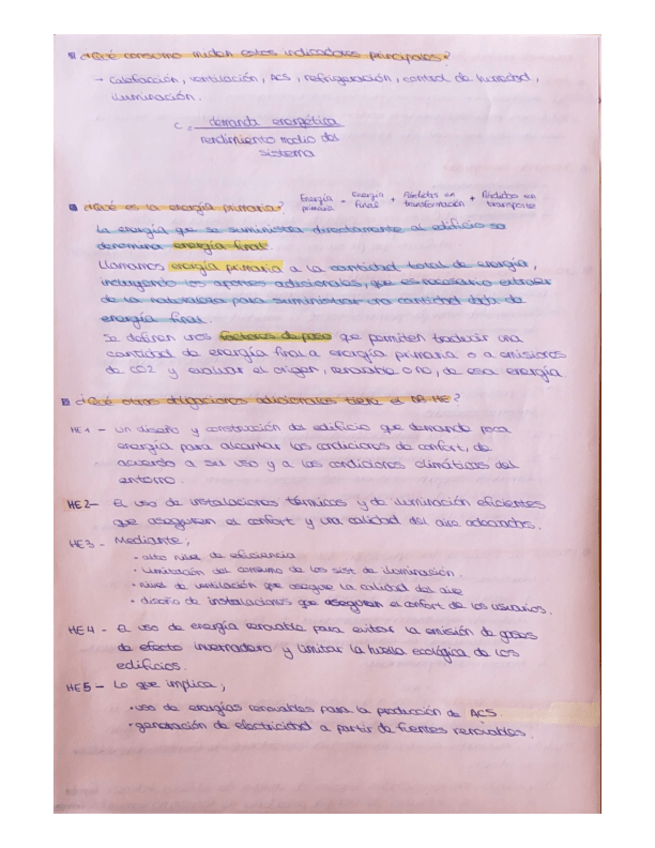 ¿Qué consumo miden estos indicadores principales?
→ Calefacción, ventilación, ACS, refrigeración, control de humedad,
iluminación.
C = demanda energética
rendimiento medio del
sistema
¿Qué es la energía primaria? Energía primaria = Energía final + Pérdidas en transformación + Pérdidas en transporte
La energía que se suministra directamente al edificio se
denomina energía final.
Llamamos energía primaria a la cantidad total de energía,
incluyendo los aportes adicionales, que es necesario extraer
de la naturaleza para suministrar una cantidad dada de
energía final.
Se definen unos factores de paso que permiten traducir una
cantidad de energía final a energía primaria o a emisiones
de CO2 y evaluar el origen, renovable o no, de esa energía.
¿Qué otras obligaciones adicionales tiene el DB HE?
HE1 - Un diseño y construcción del edificio que demande poca
energía para alcanzar las condiciones de confort, de
acuerdo a su uso y a las condiciones climáticas del
entorno.
HE2 - El uso de instalaciones térmicas y de iluminación eficientes
que aseguren el confort y una calidad del aire adecuados.
HE3 - Mediante;
· alto nivel de eficiencia
· Limitación del consumo de los sist de iluminación.
· nivel de ventilación que asegure la calidad del aire
· diseño de instalaciones que aseguren el confort de los usuarios.
HE4 - El uso de energía renovable para evitar la emisión de gases
de efecto invernadero y limitar la huella ecológica de los
edificios.
HE5 - Lo que implica;
· uso de energías renovables para la producción de ACS
· generación de electricidad a partir de fuentes renovables.